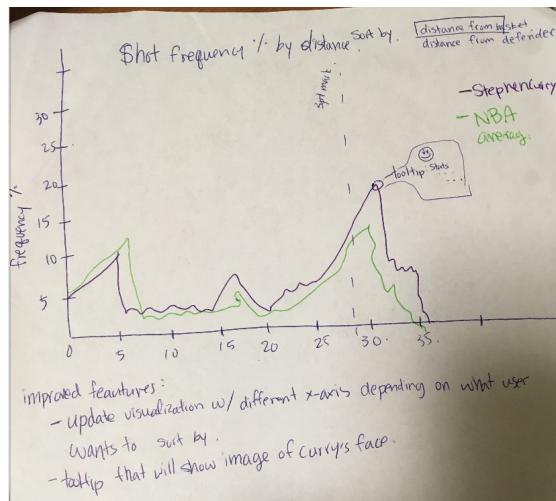 Shot frequency % by distance.
Sort by.
distance from basket
distance from defender
3pt mark
Stephen Curry
NBA
average.
tooltip
stats
.....
frequency %
30
25
20
15
10
5
0 5 10 15 20 25 30. 35.
improved feautures:
- update visualization w/ different x-axis depending on what user
wants to sort by.
- tooltip that will show image of curry's face.